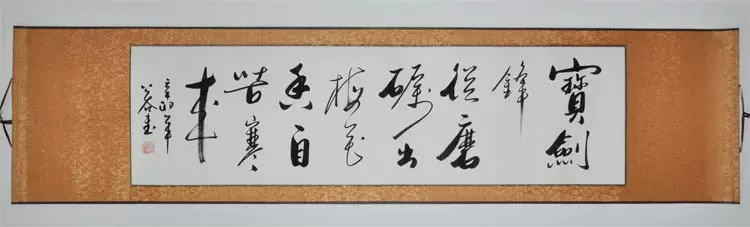 寶劍
鋒
從磨
礪出
梅花
香自
苦寒
來
辛卯年
書